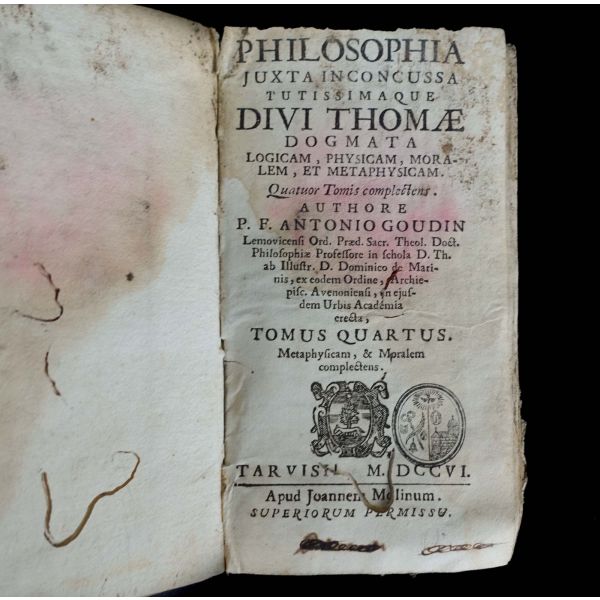 PHILOSOPHIA
JUXTA INCONCUSSA
TUTISSIMAQUE
DIVI THOMÆ
DOGMATA
LOGICAM, PHYSICAM, MORA-
LEM, ET METAPHYSICAM.
Quatuor Tomis complectens.
AUTHORE
P. F. ANTONIO GOUDIN
Lemovicensi Ord. Præd. Sacr. Theol. Doct.
Philosophiæ Professore in schola D. Th.
ab Illustr. D. Dominico de Mari-
nis, ex eodem Ordine, Archie-
pisc. Avenoniensi, in ejus-
dem Urbis Académia
erecta,
TOMUS QUARTUS.
Metaphysicam, & Moralem
complectens.
TARVISII M. DCCVI.
Apud Joannem Molinum.
SUPERIORUM PERMISSU.